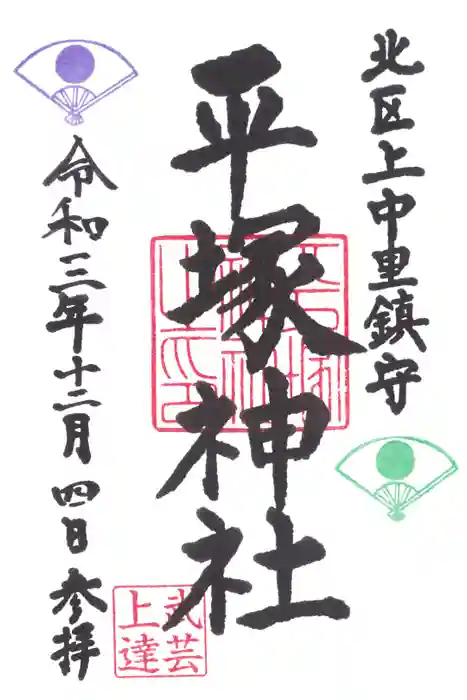 北区上中里鎮守
平塚神社
令和三年十二月四日参拝
武芸
上達